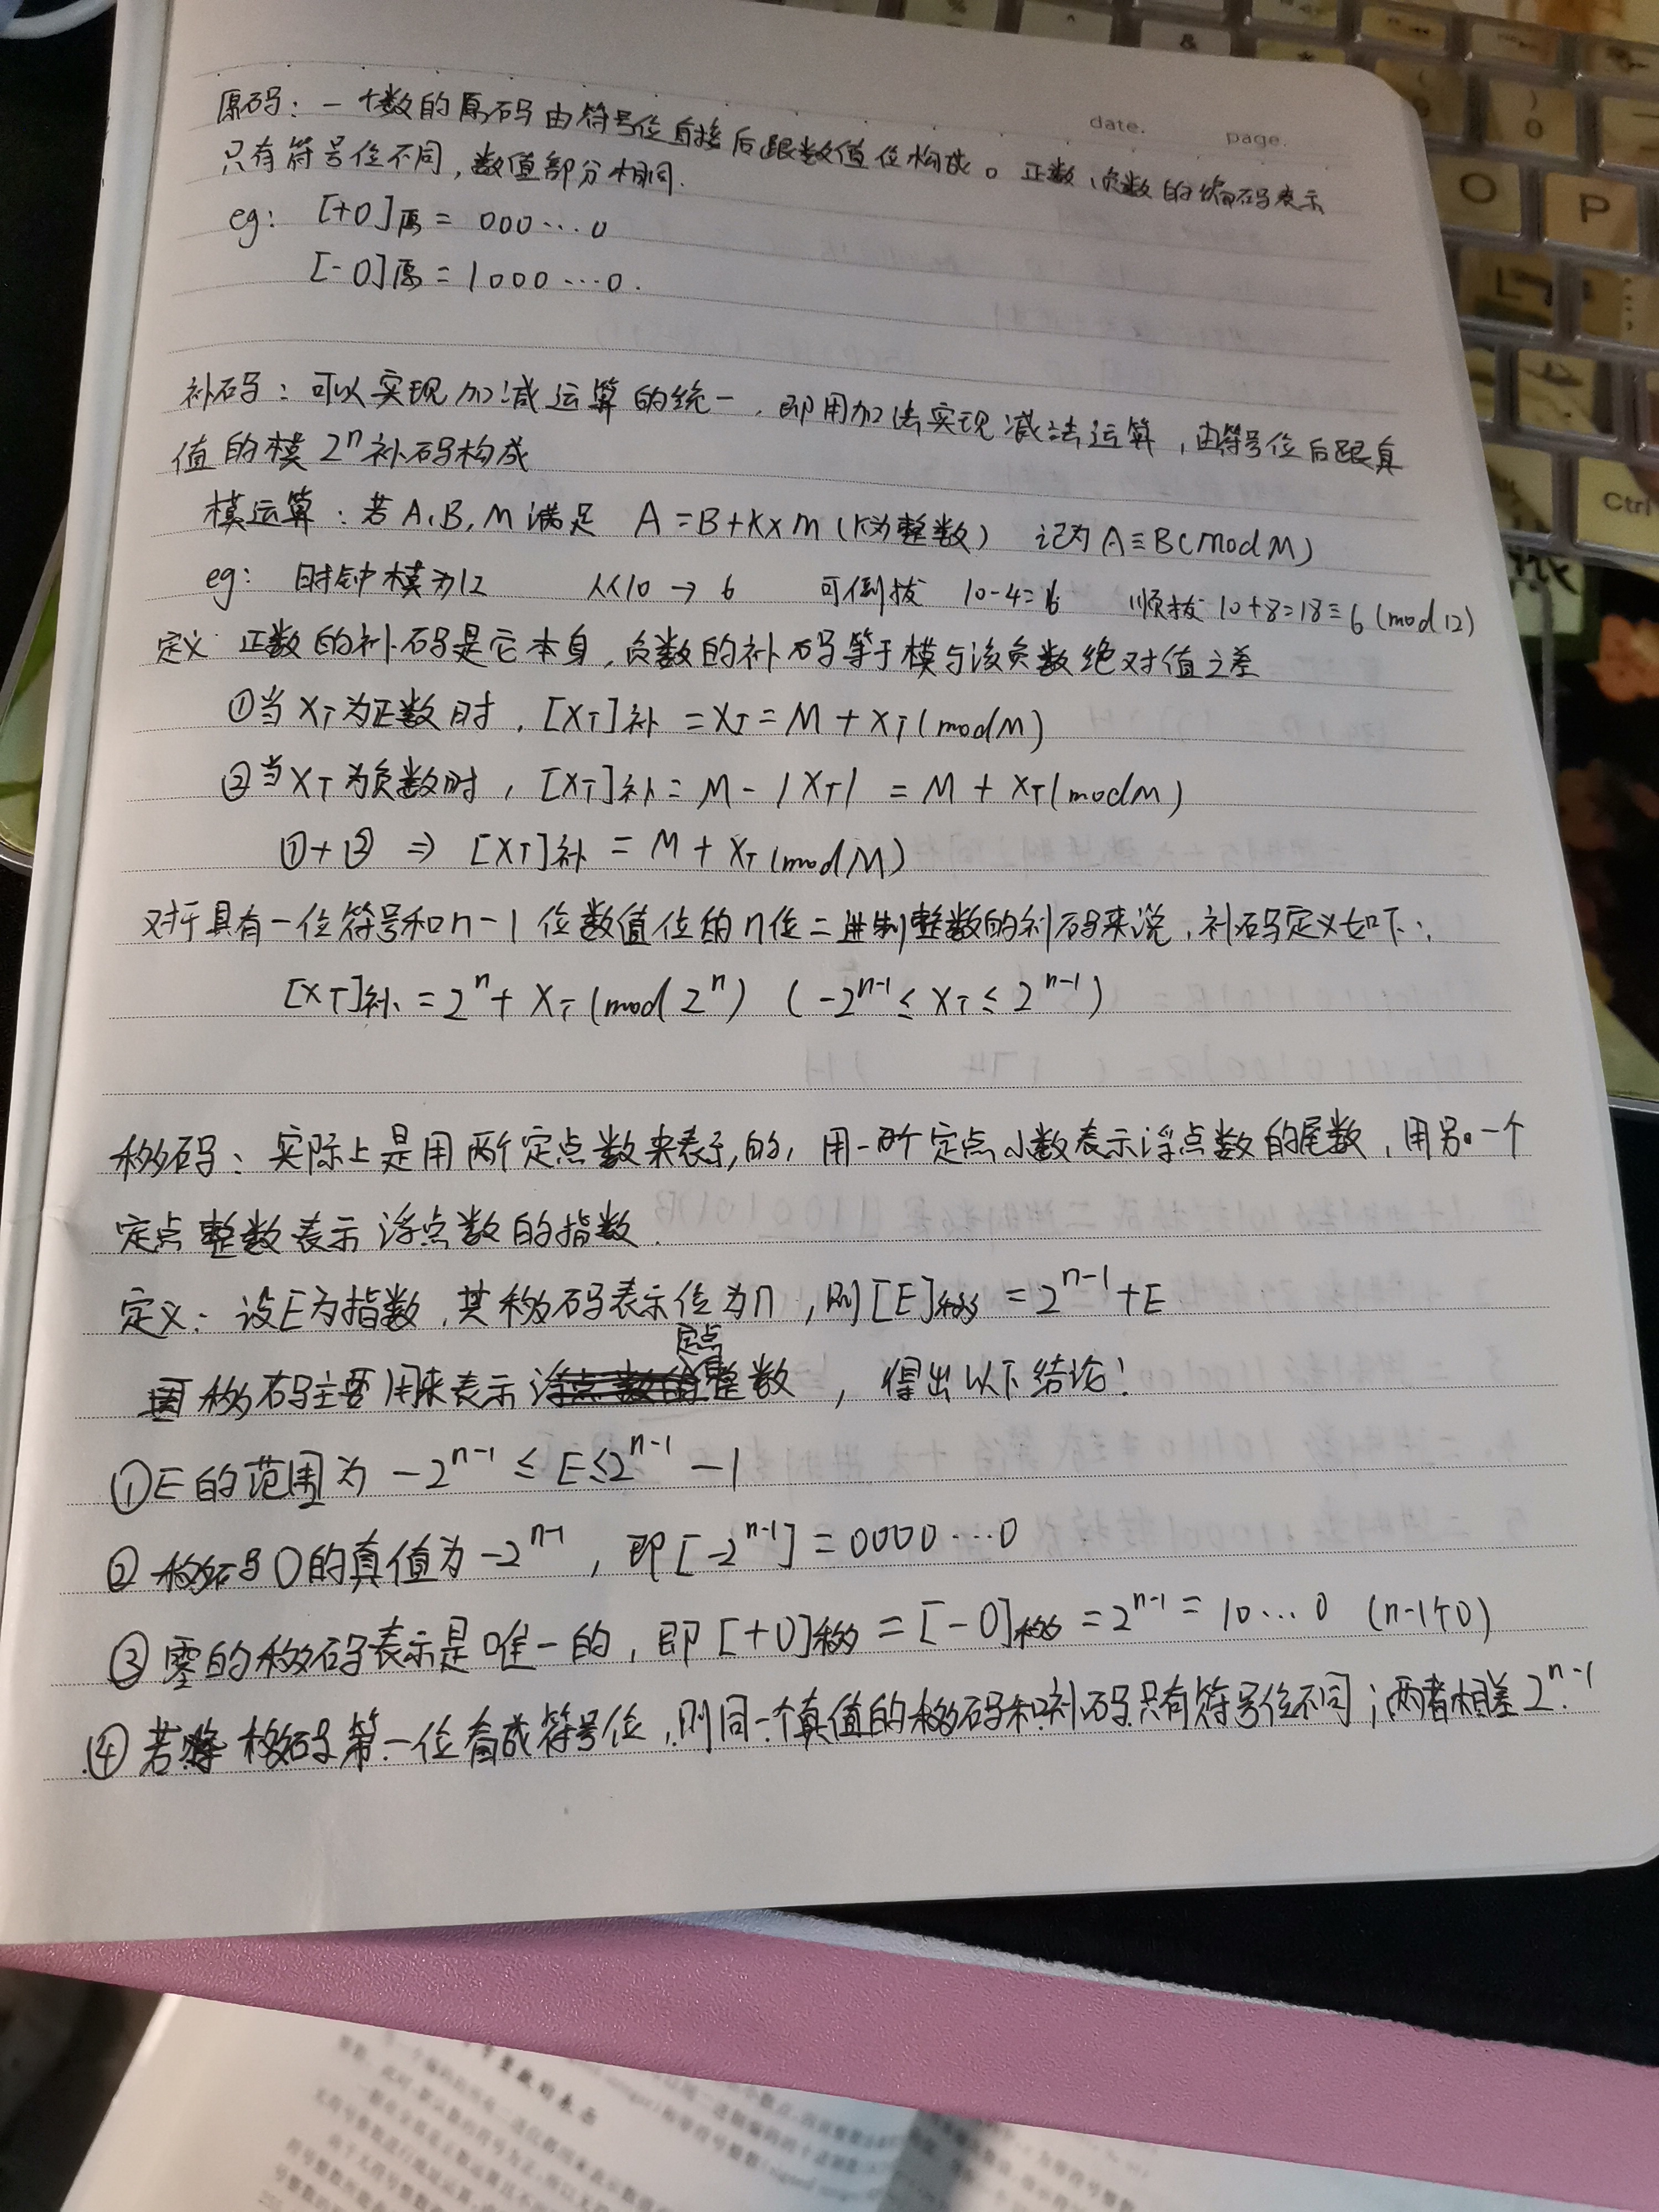 date. page.
原码：一个数的原码由符号位直接后跟数值位构成。正数、负数的编码表示
只有符号位不同，数值部分相同.
eg: [+0]原 = 000…0
[-0]原 = 1000…0.
补码：可以实现加减运算的统一，即用加法实现减法运算，由符号位后跟真
值的模2ⁿ补码构成
模运算：若A、B、M满足 A=B+K×m (K为整数) 记为A≡B(modM)
eg: 时钟模为12 从10→6 可倒拨 10-4=6 顺拨 10+8=18≡6 (mod 12)
定义 正数的补码是它本身，负数的补码等于模与该负数绝对值之差
①当X_T为正数时，[X_T]补 = X_T = M + X_T (modM)
②当X_T为负数时，[X_T]补 = M - |X_T| = M + X_T (modM)
①+② ⇒ [X_T]补 = M + X_T (modM)
对于具有一位符号和n-1位数值位的n位二进制整数的补码来说，补码定义如下：
[X_T]补 = 2ⁿ + X_T (mod 2ⁿ) (-2ⁿ⁻¹ ≤ X_T ≤ 2ⁿ⁻¹)
移码：实际上是用两个定点数来表示的，用一个定点小数表示浮点数的尾数，用另一个
定点整数表示浮点数的指数.
定义：设E为指数，其移码表示位为n，则[E]移 = 2ⁿ⁻¹+E
因移码主要用来表示定点整数，得出以下结论！
①E的范围为 -2ⁿ⁻¹ ≤ E ≤ 2ⁿ⁻¹ - 1
②移码0的真值为-2ⁿ⁻¹，即[-2ⁿ⁻¹] = 0000…0
③零的移码表示是唯一的，即[+0]移 = [-0]移 = 2ⁿ⁻¹ = 10…0 (n-1个0)
④若将移码第一位看成符号位，则同一个真值的移码和补码只有符号位不同；两者相差2ⁿ⁻¹
O
P
L
Ctrl